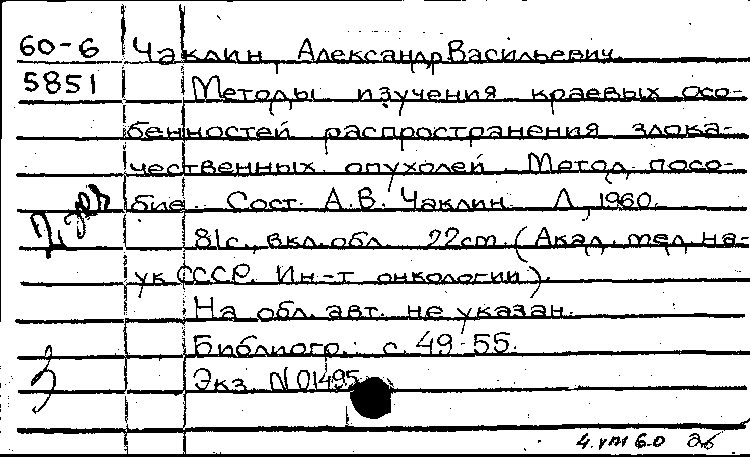 60-6 Чаклин, Александр Васильевич.
5851 Методы изучения краевых осо-
бенностей распространения злока-
чественных опухолей. Метод. посо-
бие. Сост. А.В. Чаклин. Л., 1960.
81с., вкл. обл. 22см. (Акад. мед. на-
ук СССР. Ин-т онкологии).
На обл. авт. не указан.
Библиогр.: с. 49-55.
Экз. N01495